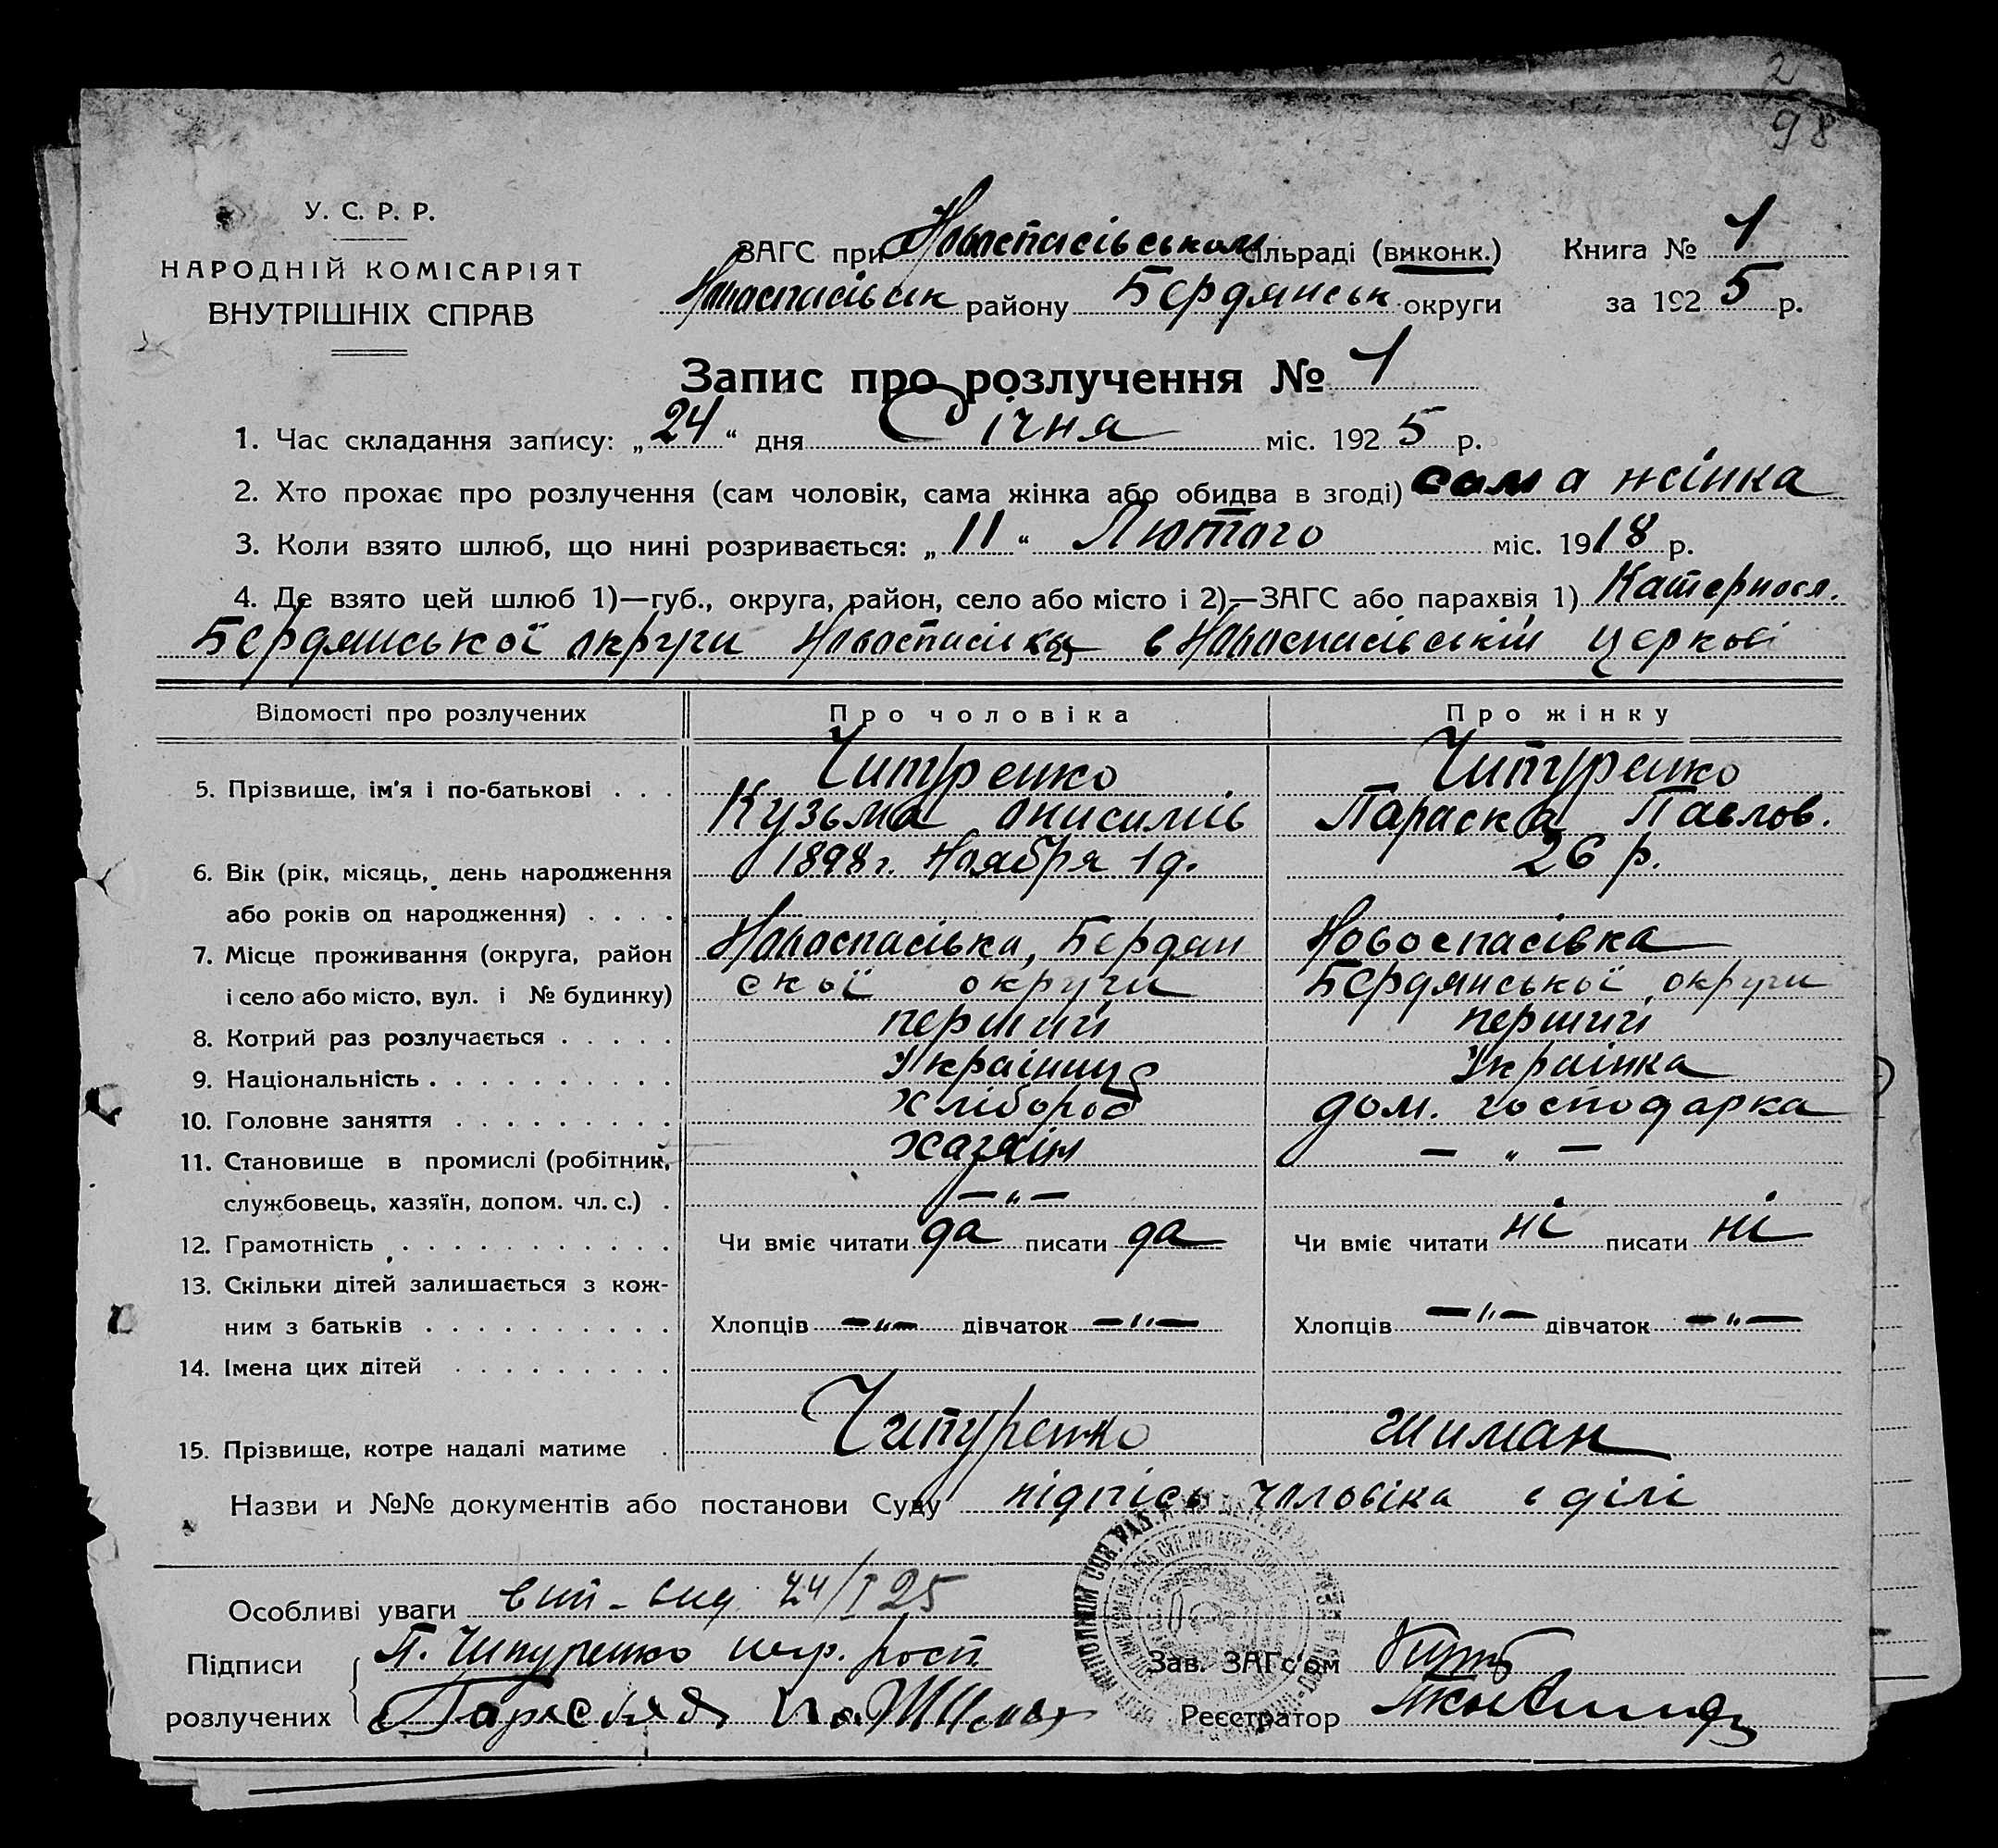 2
98
У. С. Р. Р.
НАРОДНІЙ КОМІСАРІЯТ
ВНУТРІШНІХ СПРАВ
ЗАГС при Новоспасівськом сільраді (виконк.) Книга № 1
Новоспасівськ району Бердянськ округи за 1925 р.
Запис про розлучення № 1
1. Час складання запису: „24“ дня Січня міс. 1925 р.
2. Хто прохає про розлучення (сам чоловік, сама жінка або обидва в згоді) сама жінка
3. Коли взято шлюб, що нині розривається: „11“ Лютого міс. 1918 р.
4. Де взято цей шлюб 1)—губ., округа, район, село або місто і 2)—ЗАГС або парахвія 1) Катериносл.
Бердянської округи Новоспасівка в Новоспасівській церкві
Відомості про розлучених Про чоловіка Про жінку
5. Прізвище, ім'я і по-батькові . . . Чипуренко Чипуренко
Кузьма Онисимів Параска Павлов.
6. Вік (рік, місяць, день народження 1898 г. Ноября 19. 26 р.
або років од народження) . . . .
7. Місце проживання (округа, район Новоспасівка, Бердян Новоспасівка
і село або місто, вул. і № будинку) ської округи Бердянської округи
8. Котрий раз розлучається . . . . . перший перший
9. Національність . . . . . . . . . . Українець Українка
10. Головне заняття . . . . . . . . . хлібороб дом. господарка
11. Становище в промислі (робітник, хазяїн — „ —
службовець, хазяїн, допом. чл. с.) . — „ —
12. Грамотність . . . . . . . . . . . Чи вміє читати да писати да Чи вміє читати ні писати ні
13. Скільки дітей залишається з кож-
ним з батьків . . . . . . . . . . Хлопців — „ — дівчаток — „ — Хлопців — „ — дівчаток — „ —
14. Імена цих дітей . . . . . . . . .
15. Прізвище, котре надалі матиме . Чипуренко Шиман
Назви и №№ документів або постанови Суду підпісь чоловіка в ділі
Особливі уваги вип - вид 24/I 25
Підписи П. Чипуренко
розлучених Параская
Зав. ЗАГс'ом
Реєстратор